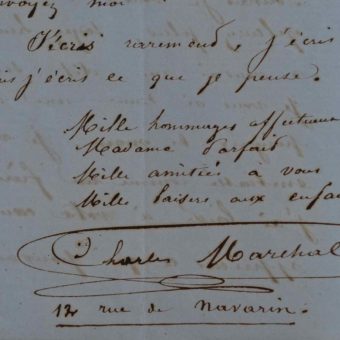 voyez moi
J'écris rarement, j'écris
j'écris ce que je pense.
Mille hommages affectueux
Madame Parfait
Mille amitiés à vous
Mille baisers aux enfan
Charles Marchal
12 rue de Navarin.